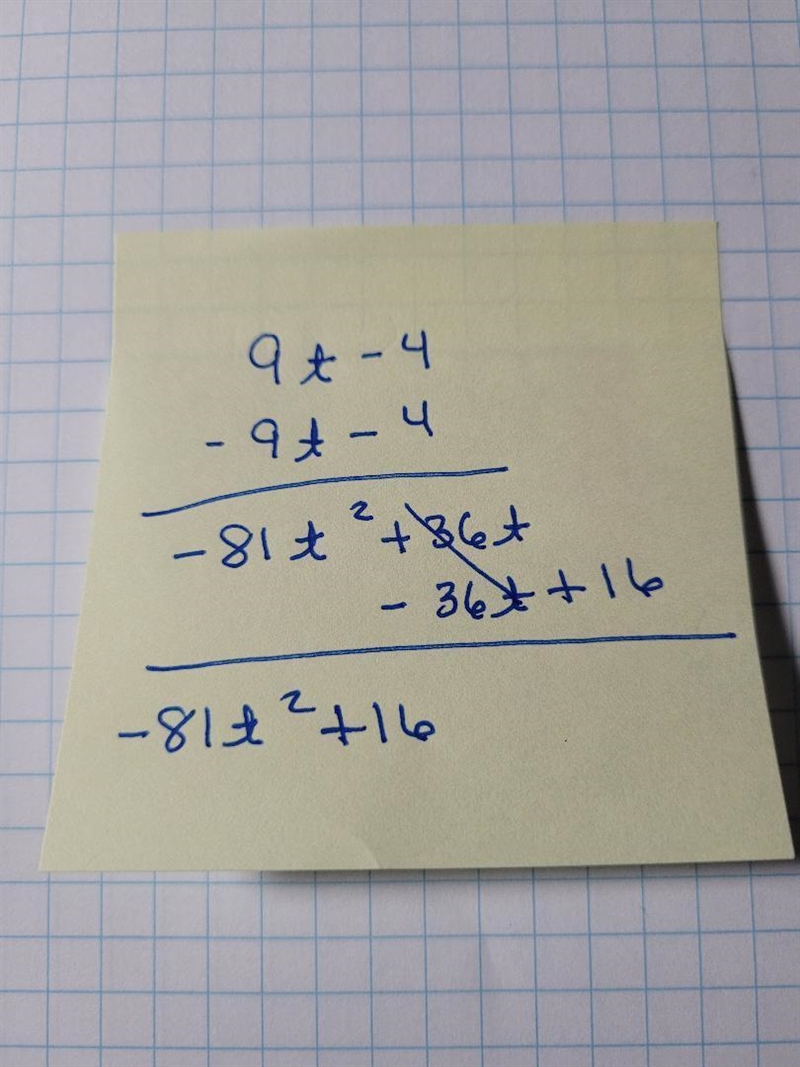 9t - 4
- 9t - 4
- 81t² + 36t
- 36t + 16
- 81t² + 16